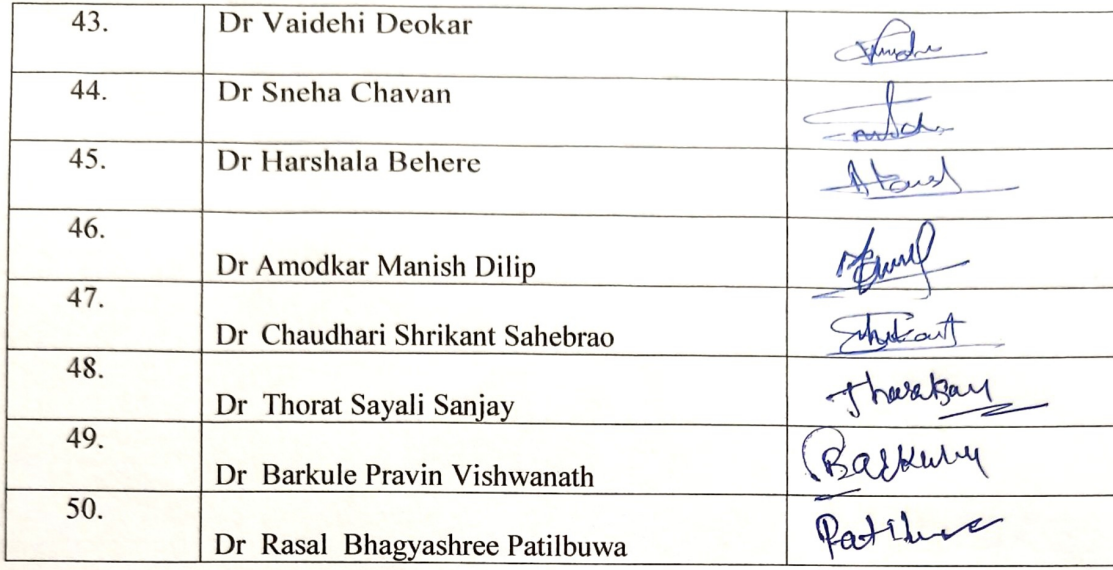 43. Dr Vaidehi Deokar
44. Dr Sneha Chavan
45. Dr Harshala Behere
46.
Dr Amodkar Manish Dilip
47.
Dr Chaudhari Shrikant Sahebrao
48.
Dr Thorat Sayali Sanjay
49.
Dr Barkule Pravin Vishwanath
50.
Dr Rasal Bhagyashree Patilbuwa